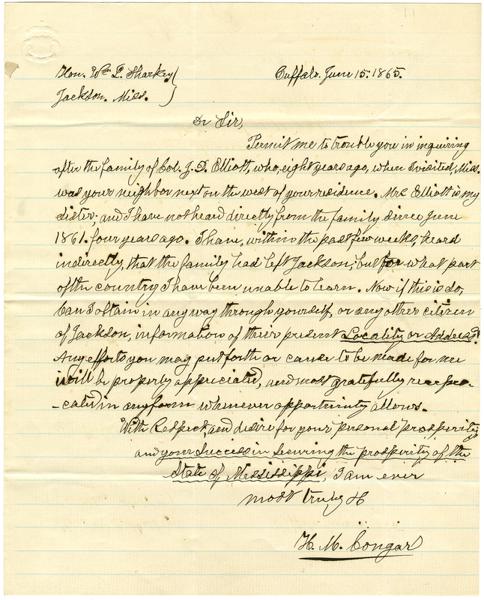 Hon. Wm L. Sharkey
Jackson. Miss.
Buffalo. June 15. 1865.
Dr Sir,
Permit me to trouble you in inquiring
after the family of Col. J. D. Elliott, who, eight years ago, when I visited, Miss.
was your neighbor next on the west of your residence. Mrs Elliott is my
sister, and I have not heard directly from the family since June
1861. four years ago. I have, within the past few weeks, heard
indirectly, that the family had left Jackson, but for what part
of the country I have been unable to learn. Now if this is so,
can I obtain in any way through yourself, or any other citizen
of Jackson, information of their present Locality or Address.
Any efforts you may put forth or cause to be made for me
will be properly appreciated, and most gratefully recipro-
-cated in any form whenever opportunity allows.
With Respect, and desire for your personal prosperity
and your success in securing the prosperity of the
State of Mississippi, I am ever
most truly &
H. M. Congar